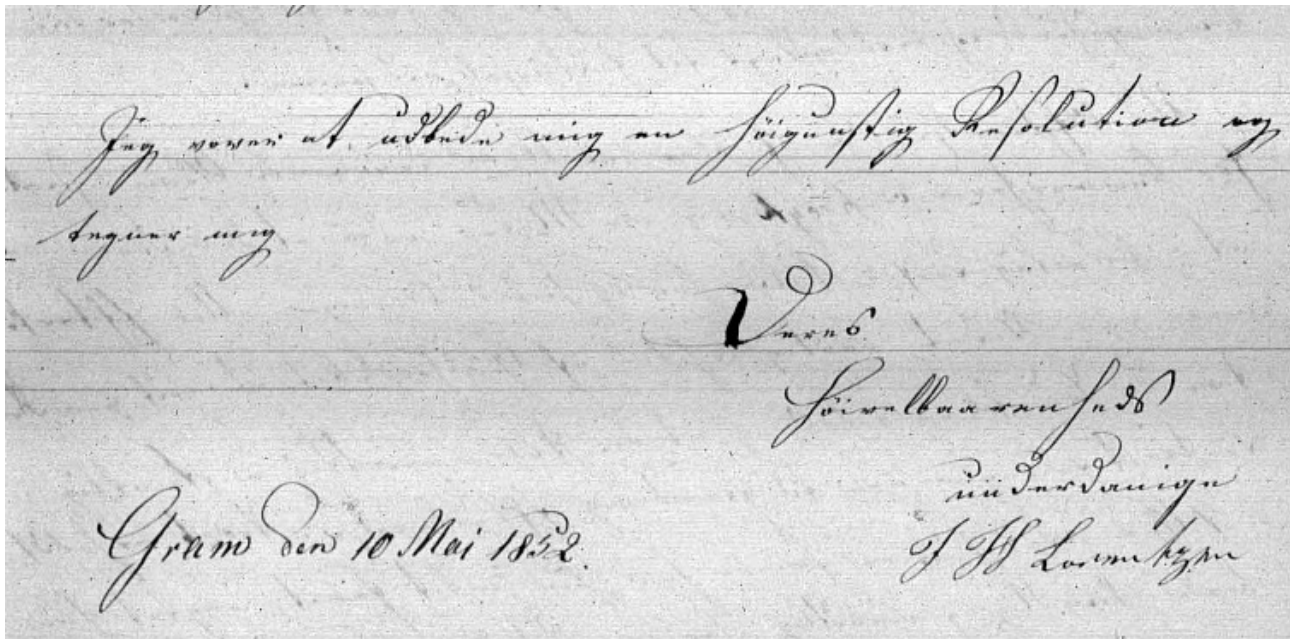 Jeg vover at udbede mig en höigunstig Resolution og
tegner mig
Deres
Höivelbaarenheds
underdanige
Gram den 10 Mai 1852.
Lorentzen